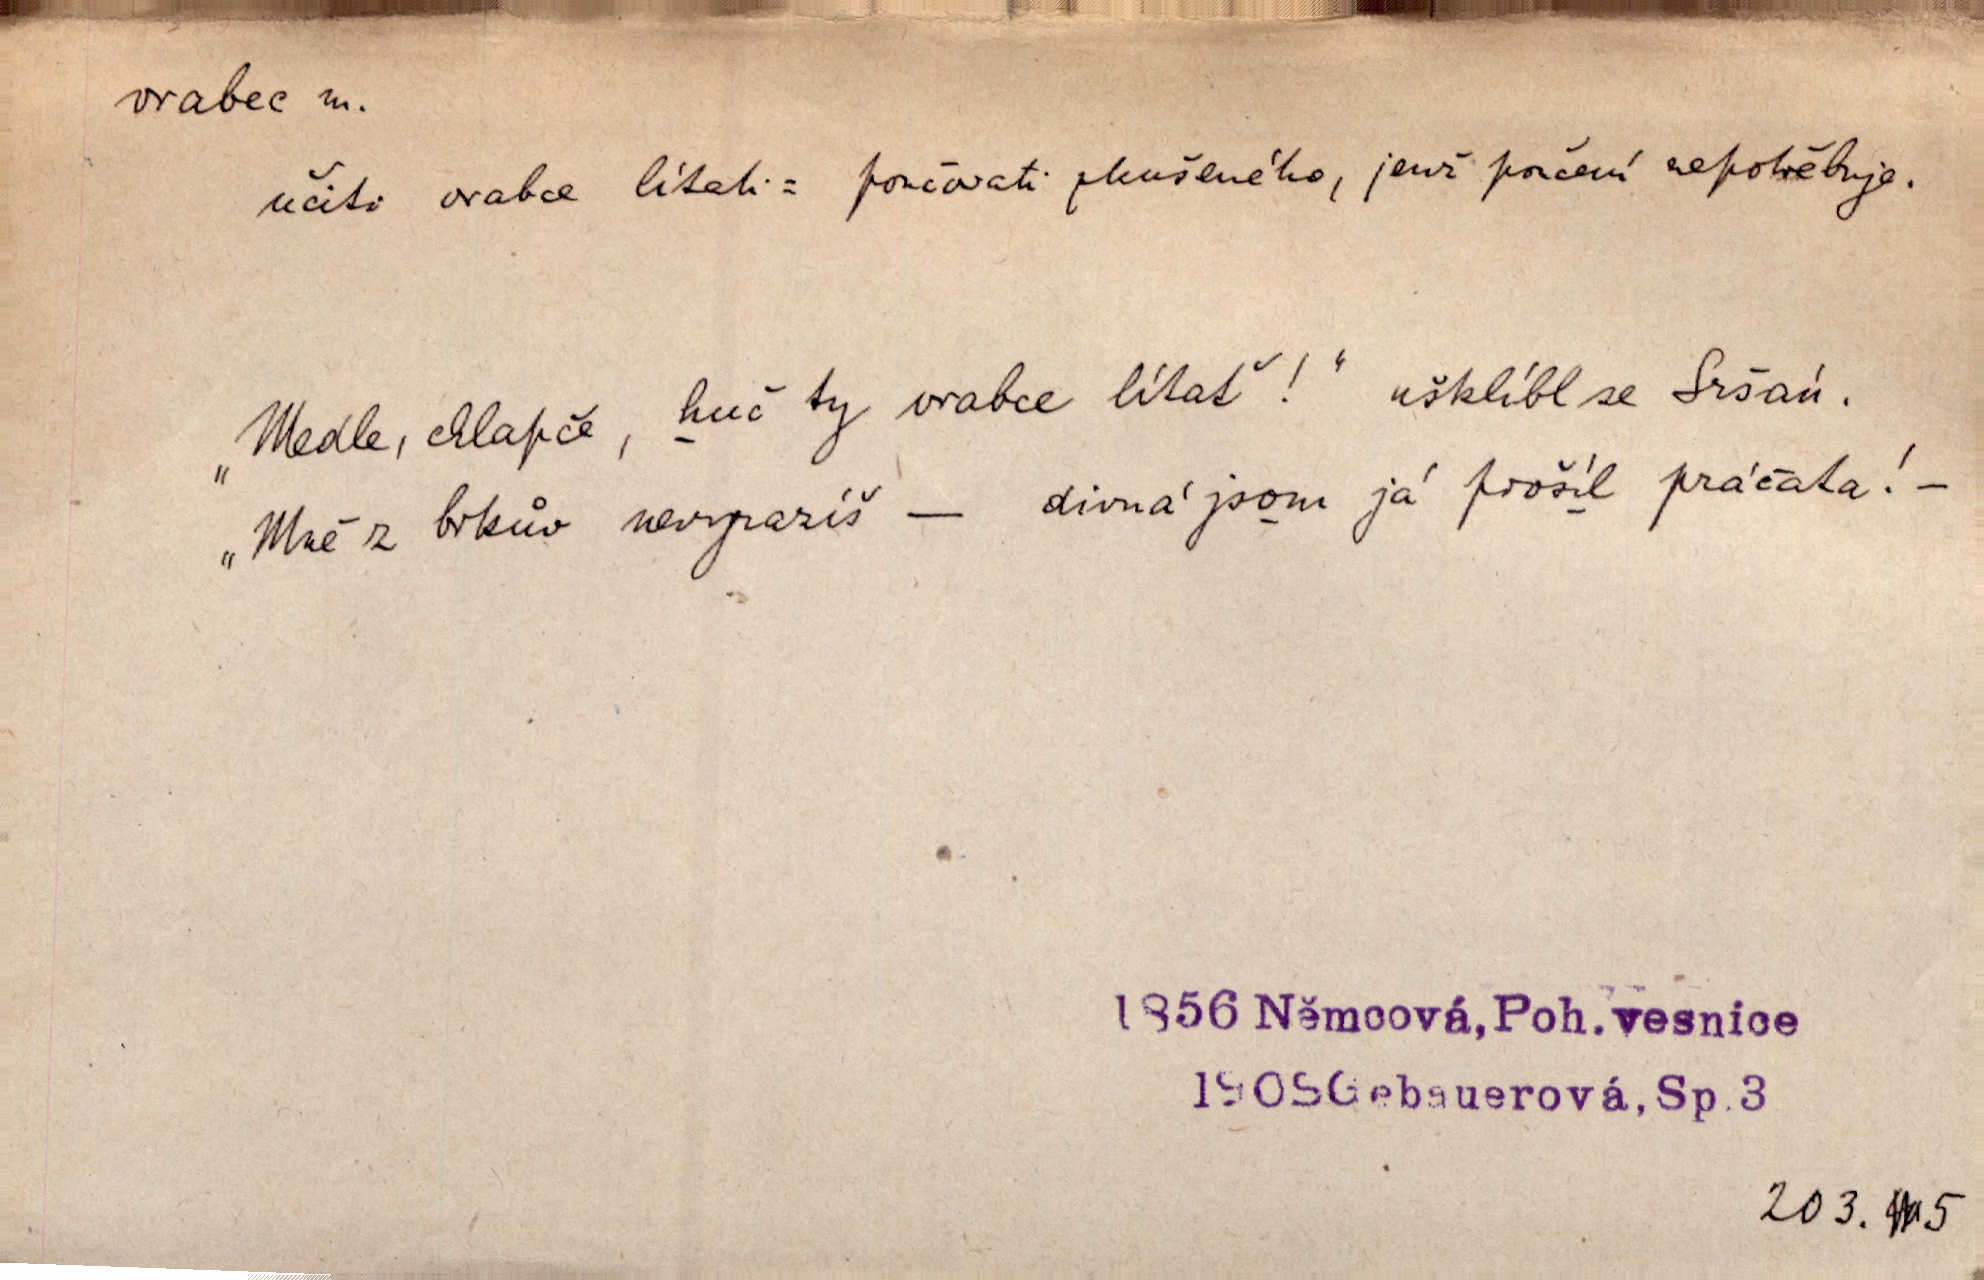 vrabec m.
učiti vrabce lítati = poučovati zkušeného, jenž poučení nepotřebuje.
„Medle, chlapče, huč ty vrabce lítať!“ ušklíbl se Sršáń.
„Mně z brkův nevyrazíš — divná jsom já prošíl práčata! —
1856 Němcová, Poh. vesnice
1908 Gebauerová, Sp. 3
203. 5